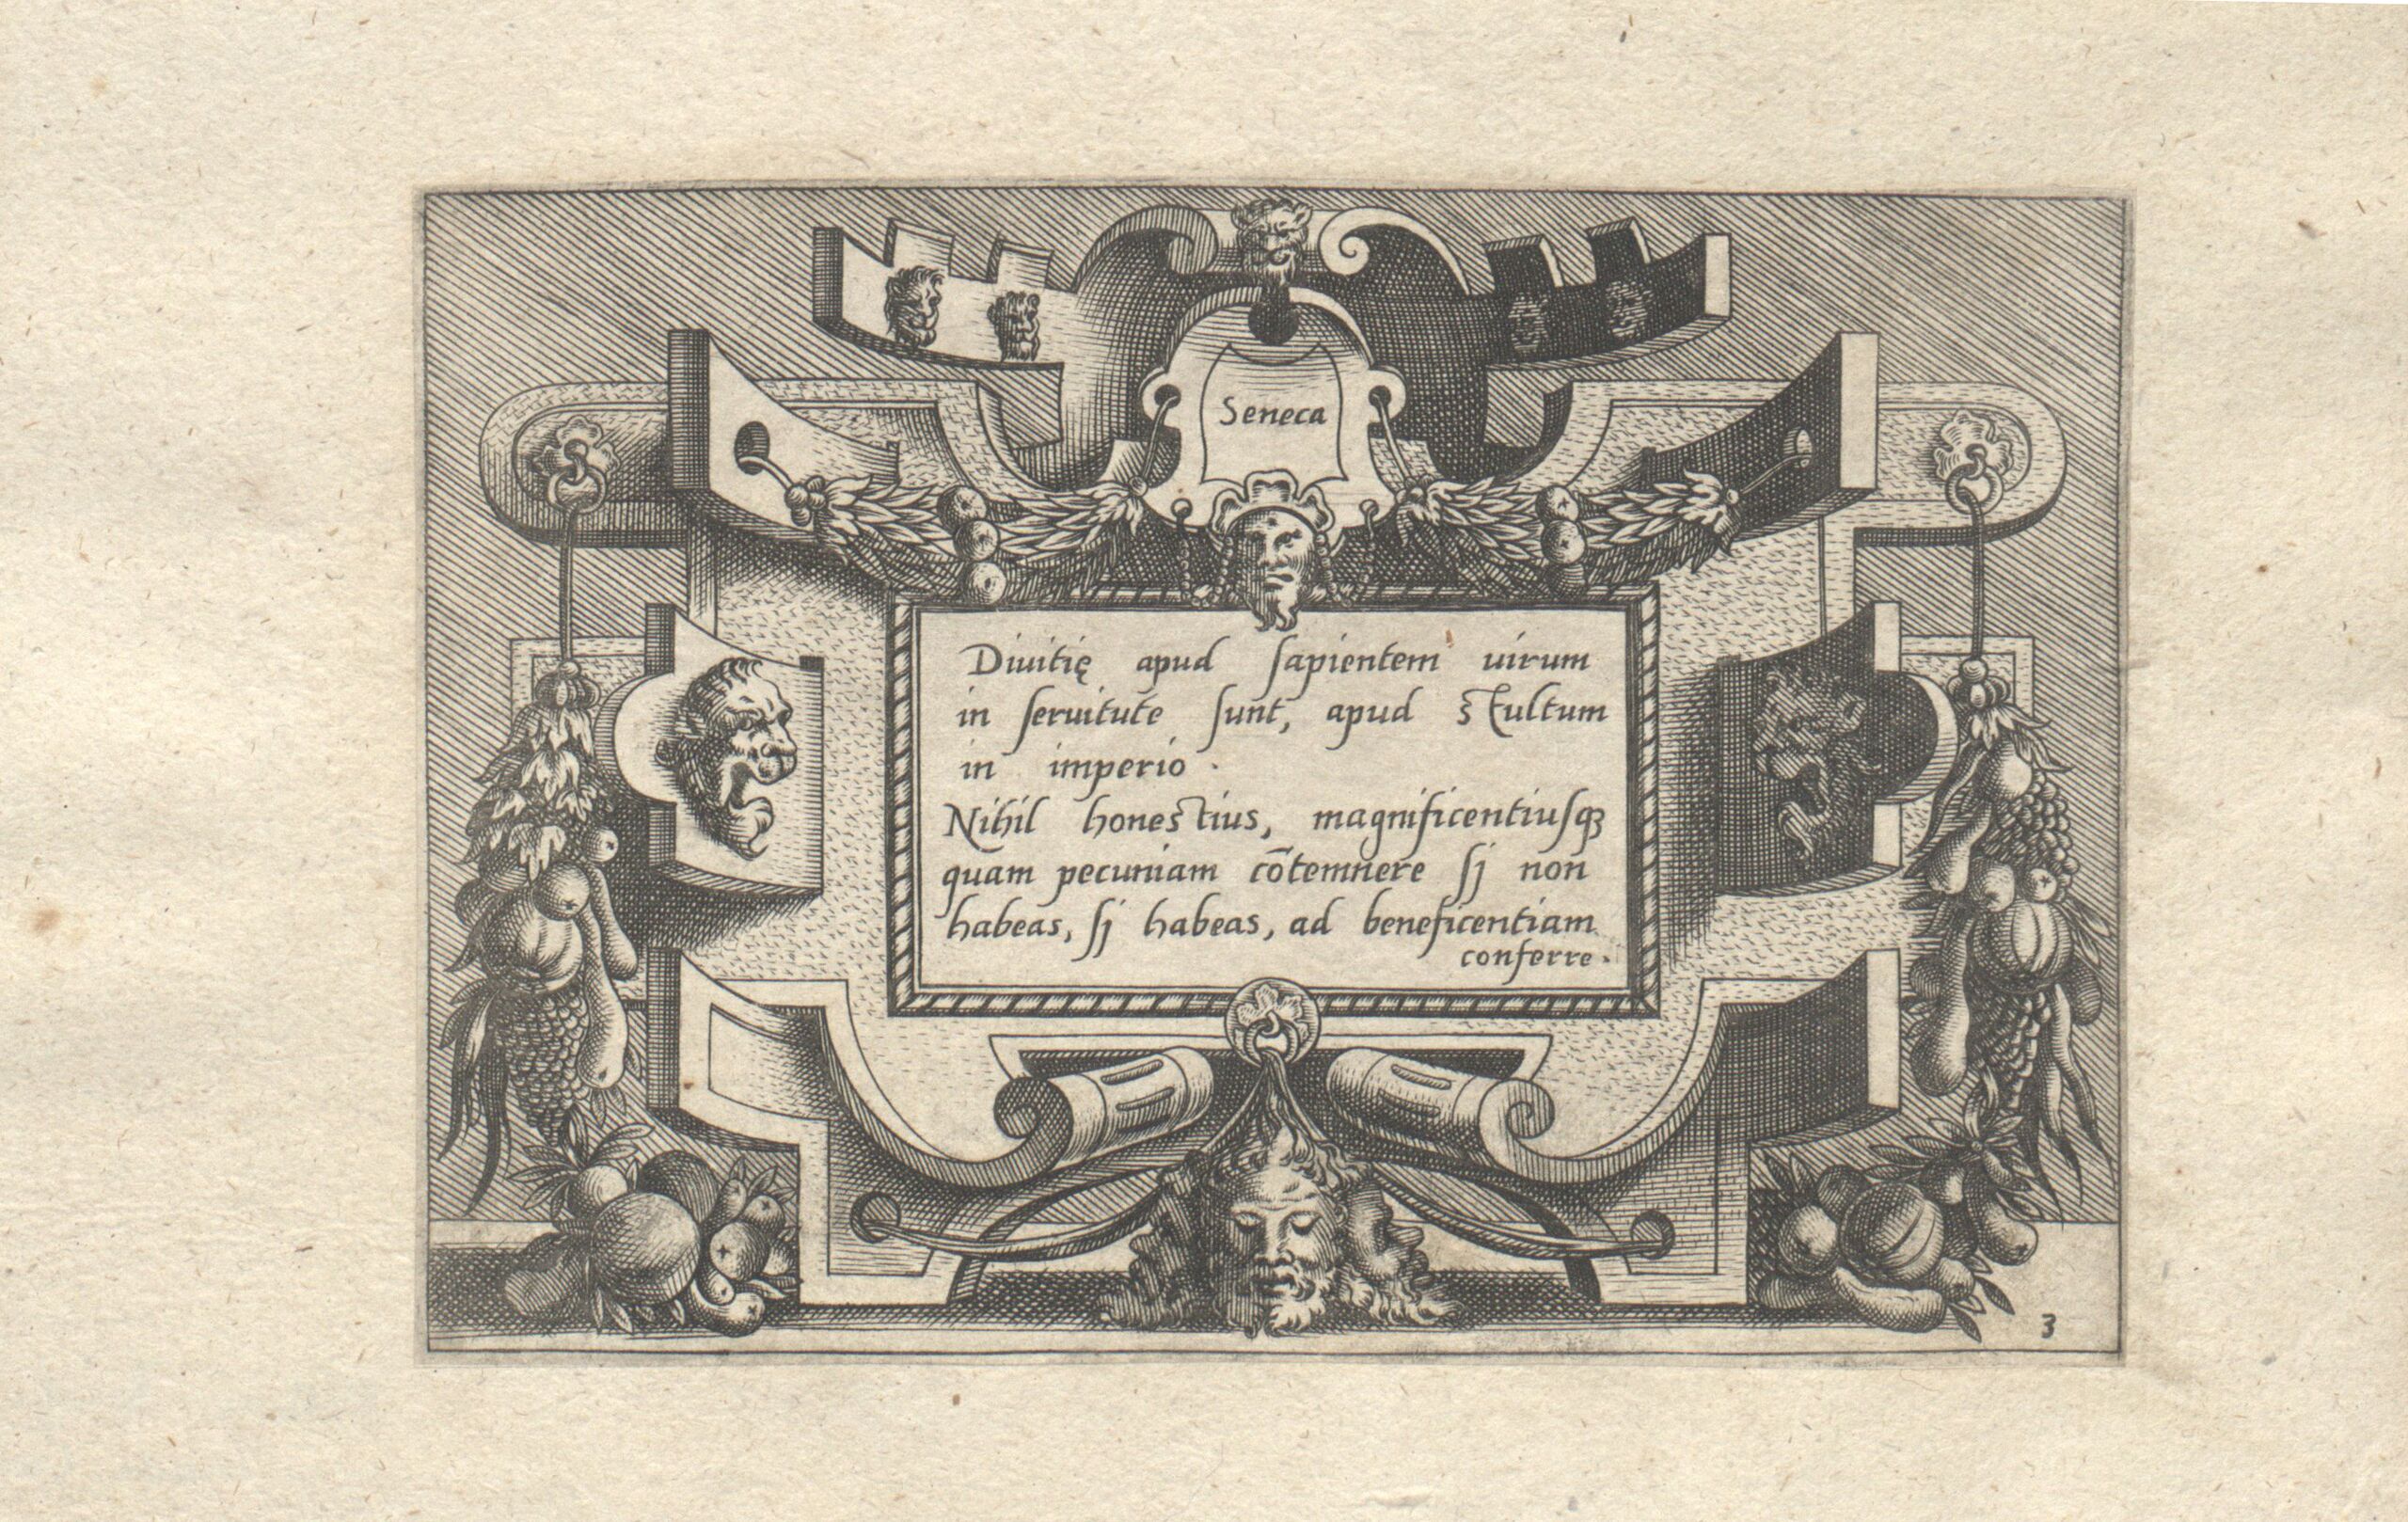 Seneca
Diuitię apud sapientem uirum
in seruitute sunt, apud stultum
in imperio.
Nihil honestius, magnificentiusqꝫ
quam pecuniam cōtemnere sj non
habeas, sj habeas, ad beneficentiam
conferre.
3